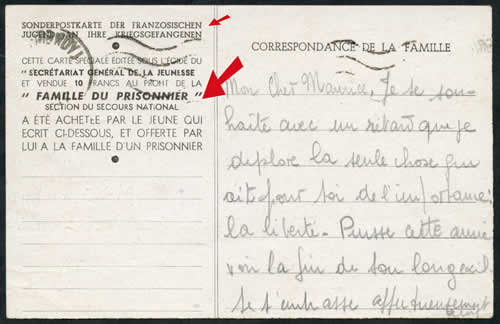 SONDERPOSTKARTE DER FRANZOSISCHEN
JUGEND AN IHRE KRIEGSGEFANGENEN
CETTE CARTE SPÉCIALE ÉDITÉE SOUS L'ÉGIDE DU
"SECRÉTARIAT GÉNÉRAL DE LA JEUNESSE
ET VENDUE 10 FRANCS AU PROFIT DE LA
"FAMILLE DU PRISONNIER"
SECTION DU SECOURS NATIONAL
A ÉTÉ ACHETÉE PAR LE JEUNE QUI
ÉCRIT CI-DESSOUS, ET OFFERTE PAR
LUI A LA FAMILLE D'UN PRISONNIER
CORRESPONDANCE DE LA FAMILLE
Mon Cher Maurice, Je te sou-
haite avec un retard que je
déplore la seule chose qui
ait pour toi de l'importance
la liberté. Puisse cette année
voir la fin de ton long exil
Je t'embrasse affectueusement